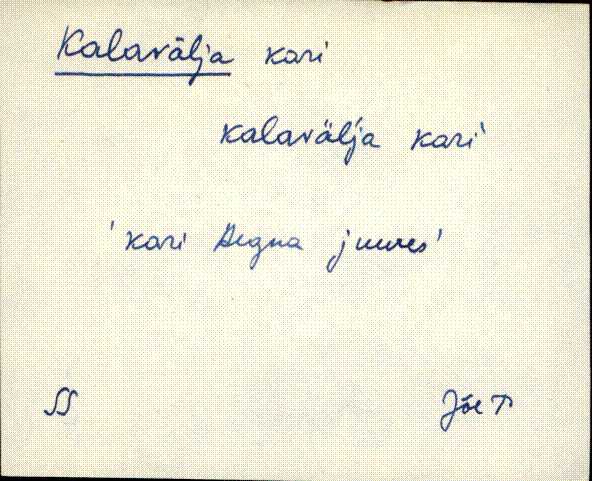 Kalavälja kari
kalaväl'ja kari
'kari Aegna juures'
SS Jõe T